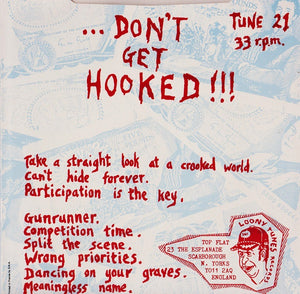 ...DON'T
GET
HOOKED!!!
TUNE 21
33 r.p.m.
Take a straight look at a crooked world.
Can't hide forever.
Participation is the key.
Gunrunner.
Competition time.
Split the scene.
Wrong priorities.
Dancing on your graves.
Meaningless name.
TOP FLAT
23 THE ESPLANADE
SCARBOROUGH
N. YORKS
YO11 2AQ
ENGLAND
LOONY TUNES
RECORDS